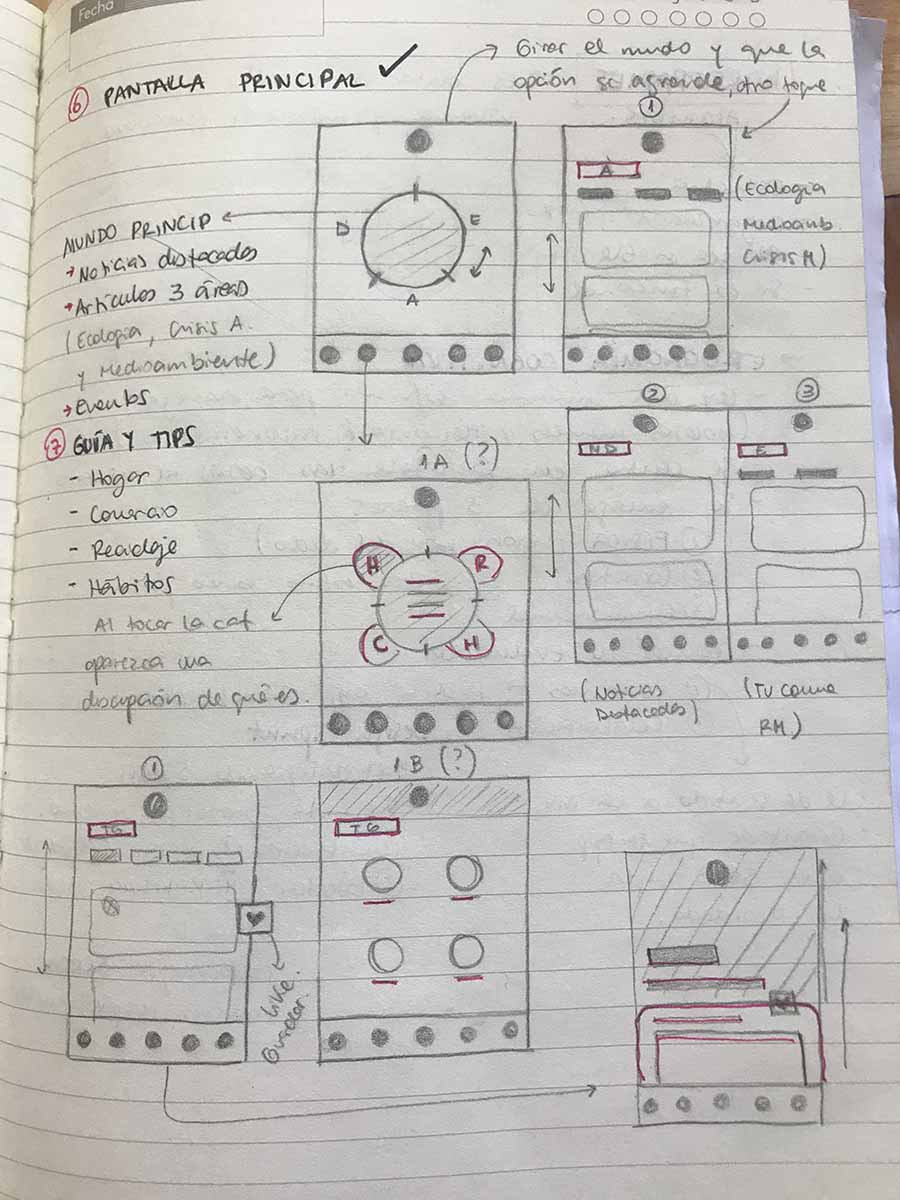 Fecha
⑥ PANTALLA PRINCIPAL ✓
Girar el mundo y que la
opción se agrande, otro toque
①
A
(Ecologia
Medioamb
Crisis A)
D
E
A
MUNDO PRINCIP
→ Noticias distacados
→ Artículos 3 áreas
(Ecologia, Crisis A.
y Medioambiente)
→ Eventos
⑦ GUÍA Y TIPS
- Hogar
- Reciclaje
- Hábitos
Al tocar la cat
aparezca una
discripción de qué es.
1A (?)
H
R
C
H
②
ND
(Noticias
Distacados)
③
E
(Tu
RM)
①
TG
Like
Guardar.
1B (?)
TG